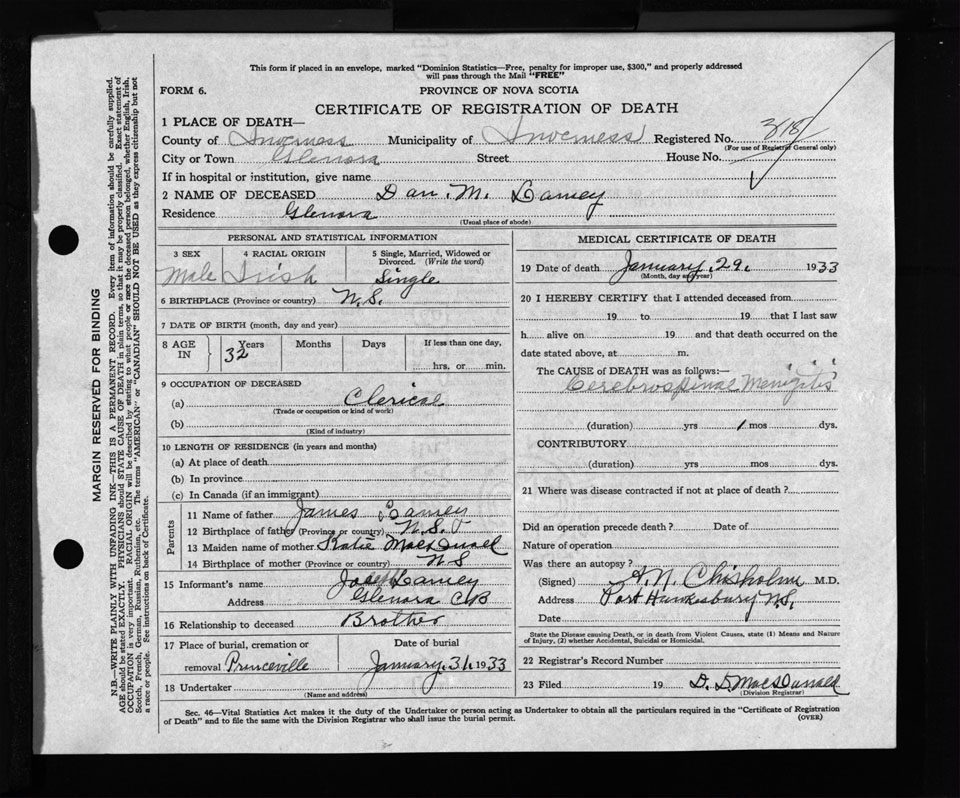 This form if placed in an envelope, marked "Dominion Statistics—Free, penalty for improper use, $300," and properly addressed
will pass through the Mail "FREE"
FORM 6.
PROVINCE OF NOVA SCOTIA
CERTIFICATE OF REGISTRATION OF DEATH
1 PLACE OF DEATH—
County of Inverness Municipality of Inverness Registered No. 318
(For use of Registrar General only)
City or Town Glenora Street House No.
If in hospital or institution, give name
2 NAME OF DECEASED Dan. M. Lamey
Residence Glenora
(Usual place of abode)
PERSONAL AND STATISTICAL INFORMATION
3 SEX 4 RACIAL ORIGIN 5 Single, Married, Widowed or
Divorced. (Write the word)
Male Irish Single
6 BIRTHPLACE (Province or country) N.S.
7 DATE OF BIRTH (month, day and year)
8 AGE IN Years Months Days If less than one day,
32 hrs. or min.
9 OCCUPATION OF DECEASED
(a) Clerical
(Trade or occupation or kind of work)
(b)
(Kind of industry)
10 LENGTH OF RESIDENCE (in years and months)
(a) At place of death
(b) In province
(c) In Canada (if an immigrant)
Parents
11 Name of father James Lamey
12 Birthplace of father (Province or country) N.S.
13 Maiden name of mother Katie
14 Birthplace of mother (Province or country) N S
15 Informant's name Joseph Lamey
Address Glenora CB
16 Relationship to deceased Brother
17 Place of burial, cremation or Date of burial
removal Princeville January, 31, 1933
18 Undertaker
(Name and address)
MEDICAL CERTIFICATE OF DEATH
19 Date of death January, 29, 1933
(Month, day and year)
20 I HEREBY CERTIFY that I attended deceased from
19 to 19 that I last saw
h alive on 19 and that death occurred on the
date stated above, at m.
The CAUSE of DEATH was as follows:—
Cerebrospinal Menigitis
(duration) yrs 1 mos dys.
CONTRIBUTORY
(duration) yrs mos dys.
21 Where was disease contracted if not at place of death ?
Did an operation precede death ? Date of
Nature of operation
Was there an autopsy ?
(Signed) A. N. Chisholm M.D.
Address Port Hawkesbury N.S.
Date
State the Disease causing Death, or in death from Violent Causes, state (1) Means and Nature
of Injury, (2) whether Accidental, Suicidal or Homicidal.
22 Registrar's Record Number
23 Filed 19 D. D MacDonald
(Division Registrar)
Sec. 46—Vital Statistics Act makes it the duty of the Undertaker or person acting as Undertaker to obtain all the particulars required in the "Certificate of Registration
of Death" and to file the same with the Division Registrar who shall issue the burial permit.
(OVER)
MARGIN RESERVED FOR BINDING
N.B.—WRITE PLAINLY WITH UNFADING INK—THIS IS A PERMANENT RECORD. Every item of information should be carefully supplied.
AGE should be stated EXACTLY. PHYSICIANS should STATE CAUSE OF DEATH in plain terms, so that it may be properly classified. Exact statement of
OCCUPATION is very important. RACIAL ORIGIN will be described by stating to what people or race the deceased person belonged, whether English, Irish,
Scotch, French, German, Russian, Ruthenian, etc. The terms "AMERICAN" or "CANADIAN" SHOULD NOT BE USED as they express citizenship but not
a race or people. See instructions on back of Certificate.